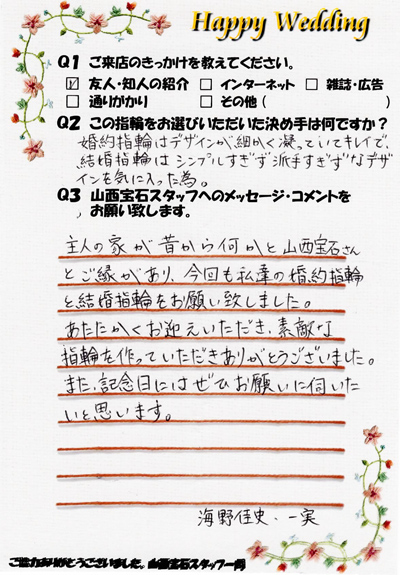 Happy Wedding
Q1 ご来店のきっかけを教えてください。
☑ 友人・知人の紹介 □ インターネット □ 雑誌・広告
□ 通りがかり □ その他 ( )
Q2 この指輪をお選びいただいた決め手は何ですか?
婚約指輪はデザインが細かく凝っていてキレイで、
結婚指輪はシンプルすぎず派手すぎずなデザ
インを気に入った為。
Q3 山西宝石スタッフへのメッセージ・コメントを
お願い致します。
主人の家が昔から何かと山西宝石さん
とご縁があり、今回も私達の婚約指輪
と結婚指輪をお願い致しました。
あたたかくお迎えいただき、素敵な
指輪を作っていただきありがとうございました。
また、記念日にはぜひお願いに伺いた
いと思います。
海野佳史・一実
ご協力ありがとうございました。山西宝石スタッフ一同